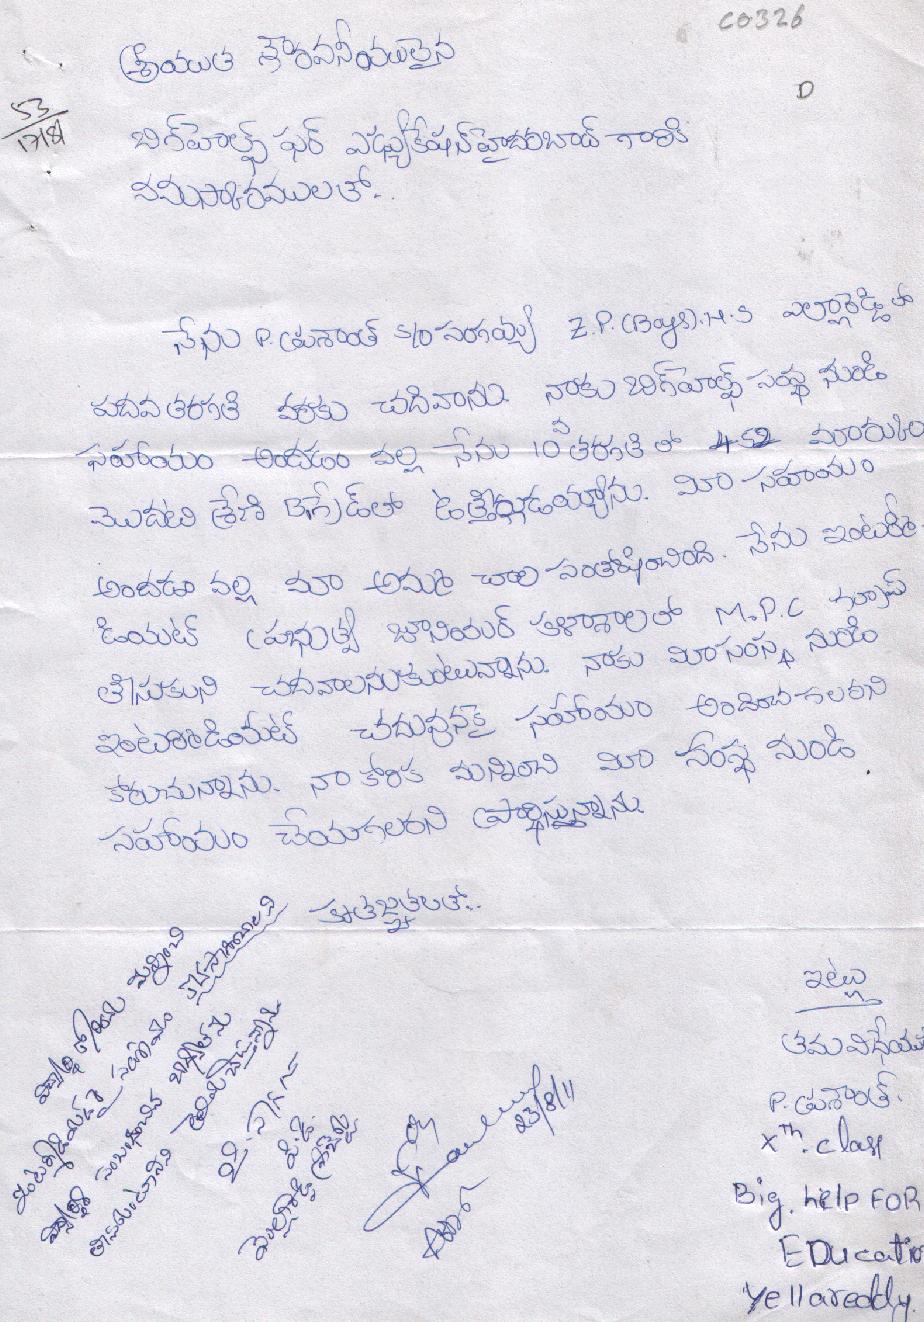 C0326
D
53
17/8/
శ్రీయుత గౌరవనీయులైన
బిగ్‌హెల్ప్ ఫర్ ఎడ్యుకేషన్ హైదరాబాద్ గారికి
నమస్కారములతో..
నేను P.ప్రశాంత్ S/o సంగయ్య Z.P.(Boys).H.S ఎల్లారెడ్డి లో
పదవ తరగతి వరకు చదివాను. నాకు బిగ్‌హెల్ప్ సంస్థ నుండి
సహాయం అందడం వల్ల నేను 10వ తరగతి లో 452 మార్కుల
మొదటి శ్రేణి B గ్రేడ్‌లో ఉత్తీర్ణుడయ్యాను. మీరు సహాయం
అందడం వల్ల మా అమ్మ చాల సంతోషించింది. నేను ఇంటర్మీ
డియట్ ప్రభుత్వ జూనియర్ కళాశాలలో M.P.C గ్రూప్
తీసుకుని చదవాలనుకుంటున్నాను. నాకు మీ సంస్థ నుండి
ఇంటర్మీడియేట్ చదువుటకై సహాయం అందించగలరని
కోరుచున్నాను. నా కోరిక మన్నించి మీ సంస్థ నుండి
సహాయం చేయగలరని ప్రార్థిస్తున్నాను.
కృతజ్ఞతలతో..
ఇట్లు
తమ విధేయు
P.ప్రశాంత్.
Xth. class
Big. help FOR
EDucatio
Yellareddy.
23/8/11